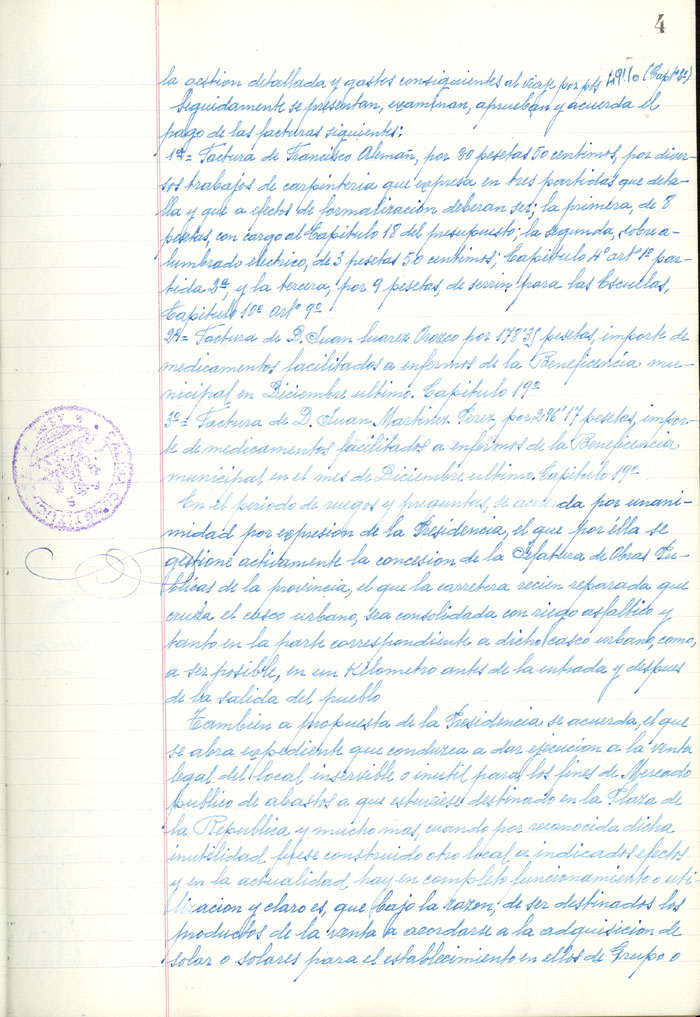 4
la gestion detallada y gastos consiguientes al viaje por pts 49'10 (Capº 1º)
Seguidamente se presentan, examinan, aprueban y acuerda el
pago de las facturas siguientes:
1ª= Factura de Francisco Alemañ, por 20 pesetas 50 centimos, por diver-
sos trabajos de carpinteria que expresa en tres partidas que deta-
lla y que a efectos de formalizacion deberan ser; la primera, de 8
pesetas, con cargo al Capitulo 18 del presupuesto; la segunda, sobre a-
lumbrado electrico, de 3 pesetas 50 centimos; Capitulo 4º artº 1º par-
tida 2ª, y la tercera, por 9 pesetas, de serrin para las Escullas,
Capitulo 10º artº 9º
2ª= Factura de D. Juan Suarez Orozco por 178'35 pesetas, importe de
medicamentos facilitados a enfermos de la Beneficencia mu-
nicipal en Diciembre ultimo. Capitulo 19º
3º= Factura de D. Juan Martinez Perez, por 296'17 pesetas, impor-
te de medicamentos facilitados a enfermos de la Beneficencia
municipal en el mes de Diciembre ultimo. Capitulo 19º
En el periodo de ruegos y preguntas, se acuerda por unani-
midad por expresion de la Presidencia, el que por ella se
gestione activamente la concesion de la Jefatura de Obras Pu-
blicas de la provincia, el que la carretera recien reparada que
cruza el casco urbano, sea consolidada con riego asfaltico y
tanto en la parte correspondiente a dicho casco urbano, como,
a ser posible, en un Kilometro antes de la entrada y despues
de la salida del pueblo
Tambien a propuesta de la Presidencia se acuerda, el que
se abra expediente que conduzca a dar ejecucion a la venta
legal del local inservible o inutil para los fines de Mercado
publico de abastos a que estuviese destinado en la Plaza de
la Republica y mucho mas, cuando por reconocida dicha
inutilidad, fuese construido otro local a indicados efectos
y en la actualidad, hay en completo funcionamiento o uti-
lizacion y claro es, que bajo la razon, de ser destinados los
productos de la venta a acordarse a la adquisicion de
solar o solares para el establecimiento en ellos de Grupo o